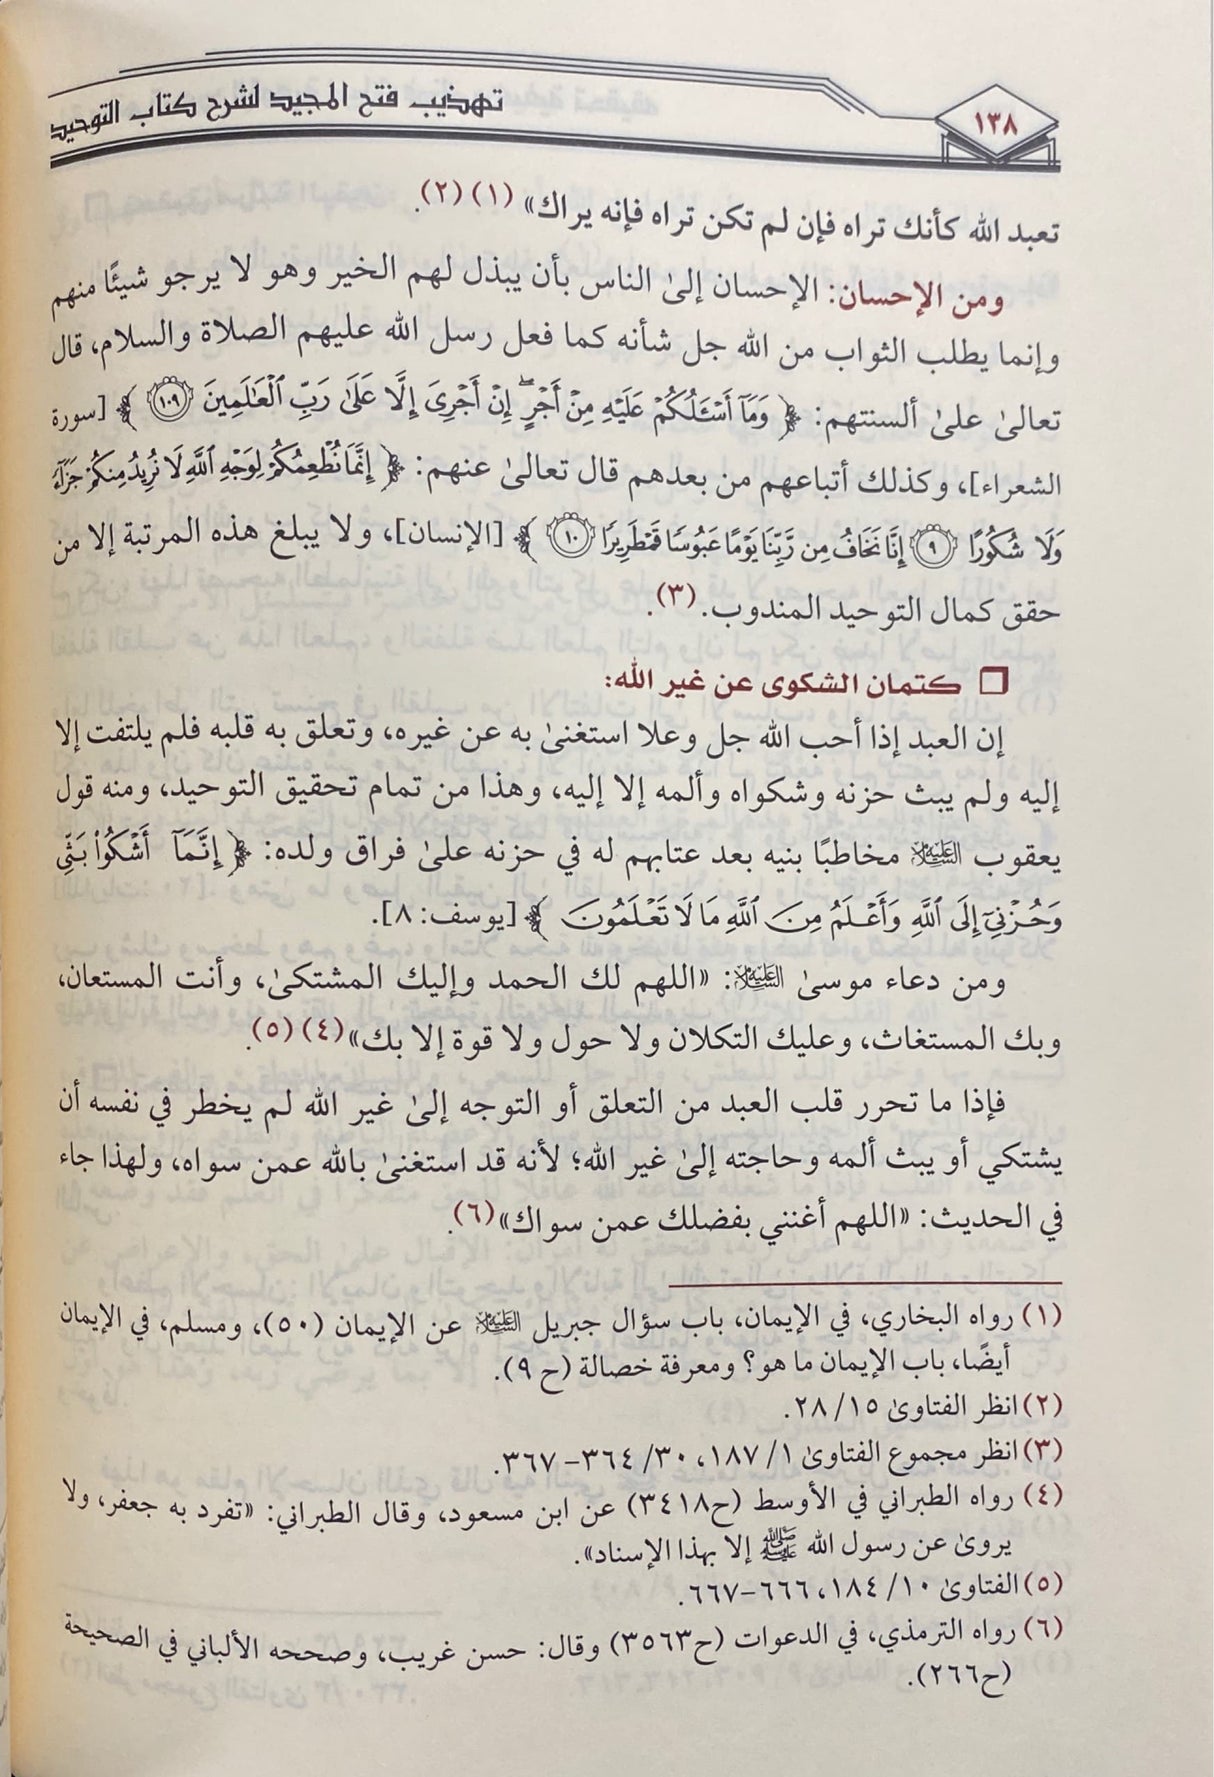 ١٣٨
تهذيب فتح المجيد لشرح كتاب التوحيد
تعبد الله كأنك تراه فإن لم تكن تراه فإنه يراك» (١) (٢).
ومن الإحسان: الإحسان إلىٰ الناس بأن يبذل لهم الخير وهو لا يرجو شيئًا منهم
وإنما يطلب الثواب من الله جل شأنه كما فعل رسل الله عليهم الصلاة والسلام، قال
تعالىٰ علىٰ ألسنتهم: ﴿ وَمَآ أَسْـَٔلُكُمْ عَلَيْهِ مِنْ أَجْرٍۖ إِنْ أَجْرِىَ إِلَّا عَلَىٰ رَبِّ ٱلْعَـٰلَمِينَ ١٠٩ ﴾ [سورة
الشعراء]، وكذلك أتباعهم من بعدهم قال تعالىٰ عنهم: ﴿ إِنَّمَا نُطْعِمُكُمْ لِوَجْهِ ٱللَّهِ لَا نُرِيدُ مِنكُمْ جَزَآءً
وَلَا شُكُورًا ٩ إِنَّا نَخَافُ مِن رَّبِّنَا يَوْمًا عَبُوسًا قَمْطَرِيرًا ١٠ ﴾ [الإنسان]، ولا يبلغ هذه المرتبة إلا من
حقق كمال التوحيد المندوب. (٣).
❒ كتمان الشكوى عن غير الله:
إن العبد إذا أحب الله جل وعلا استغنىٰ به عن غيره، وتعلق به قلبه فلم يلتفت إلا
إليه ولم يبث حزنه وشكواه وألمه إلا إليه، وهذا من تمام تحقيق التوحيد، ومنه قول
يعقوب عليه السلام مخاطبًا بنيه بعد عتابهم له في حزنه علىٰ فراق ولده: ﴿ إِنَّمَآ أَشْكُوا۟ بَثِّى
وَحُزْنِىٓ إِلَى ٱللَّهِ وَأَعْلَمُ مِنَ ٱللَّهِ مَا لَا تَعْلَمُونَ ﴾ [يوسف: ٨].
ومن دعاء موسىٰ عليه السلام: «اللهم لك الحمد وإليك المشتكىٰ، وأنت المستعان،
وبك المستغاث، وعليك التكلان ولا حول ولا قوة إلا بك» (٤) (٥).
فإذا ما تحرر قلب العبد من التعلق أو التوجه إلىٰ غير الله لم يخطر في نفسه أن
يشتكي أو يبث ألمه وحاجته إلىٰ غير الله؛ لأنه قد استغنىٰ بالله عمن سواه، ولهذا جاء
في الحديث: «اللهم أغنني بفضلك عمن سواك» (٦).
(١) رواه البخاري، في الإيمان، باب سؤال جبريل عليه السلام عن الإيمان (٥٠)، ومسلم، في الإيمان
أيضًا، باب الإيمان ما هو؟ ومعرفة خصالة (ح ٩).
(٢) انظر الفتاوىٰ ١٥/ ٢٨.
(٣) انظر مجموع الفتاوىٰ ١/ ١٨٧، ٣٠/ ٣٦٤ - ٣٦٧.
(٤) رواه الطبراني في الأوسط (ح٣٤١٨) عن ابن مسعود، وقال الطبراني: «تفرد به جعفر، ولا
يروىٰ عن رسول الله ﷺ إلا بهذا الإسناد».
(٥) الفتاوىٰ ١٠/ ١٨٤، ٦٦٦-٦٦٧.
(٦) رواه الترمذي، في الدعوات (ح٣٥٦٣) وقال: حسن غريب، وصححه الألباني في الصحيحة
(ح٢٦٦).